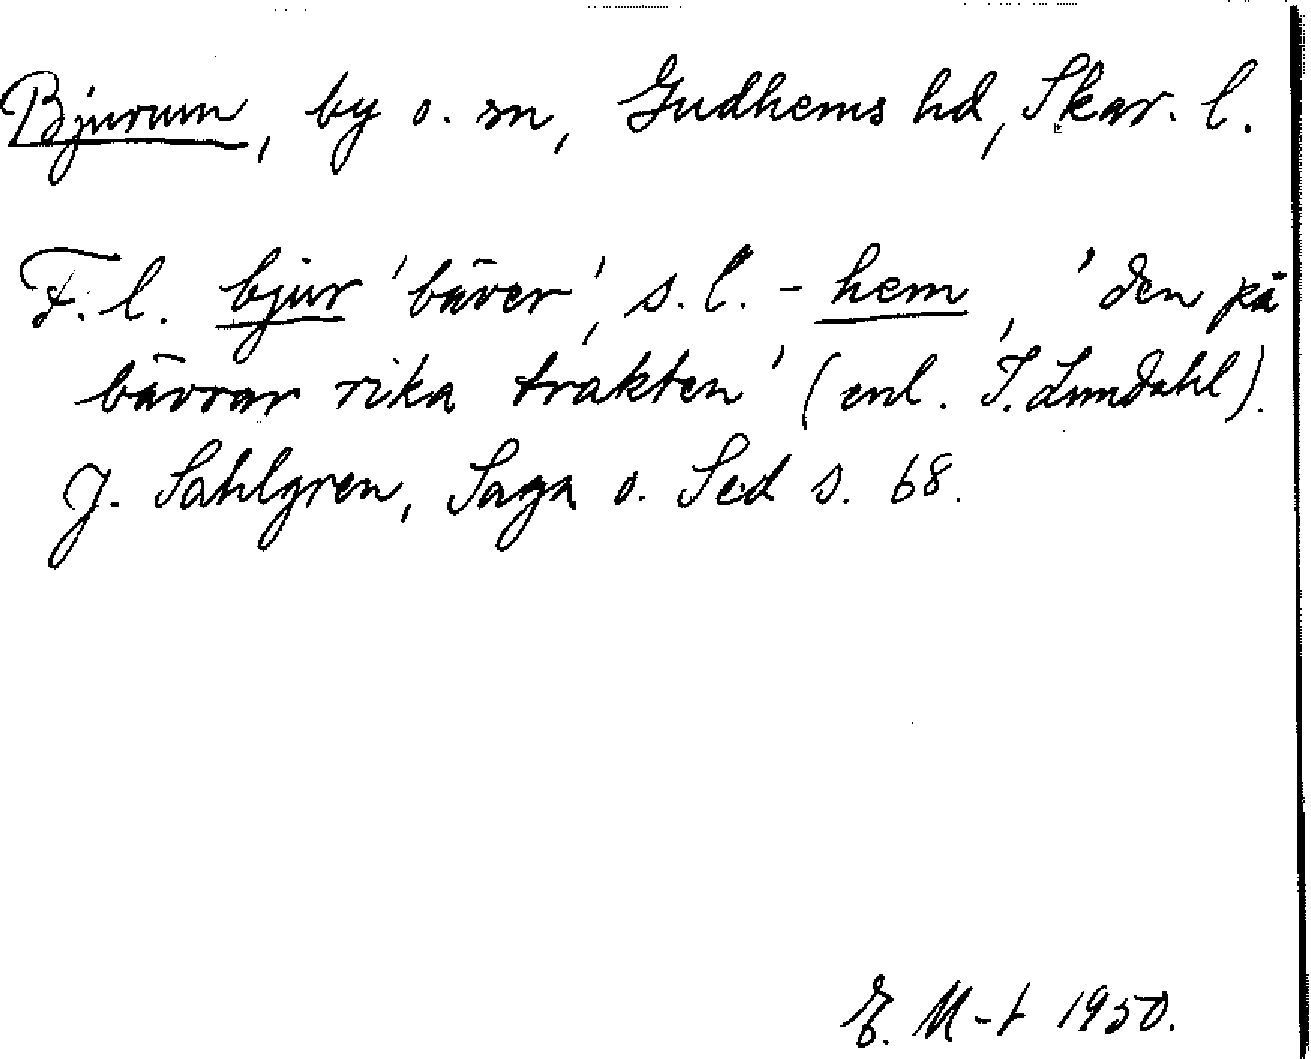 Bjurum, by o. sn, Gudhems hd, Skar. l.
F. l. bjur 'bäver', s. l. - hem, 'den på
bävrar rika trakten' (enl. I. Lundahl).
J. Sahlgren, Saga o. Sed s. 68.
E. M-t 1950.